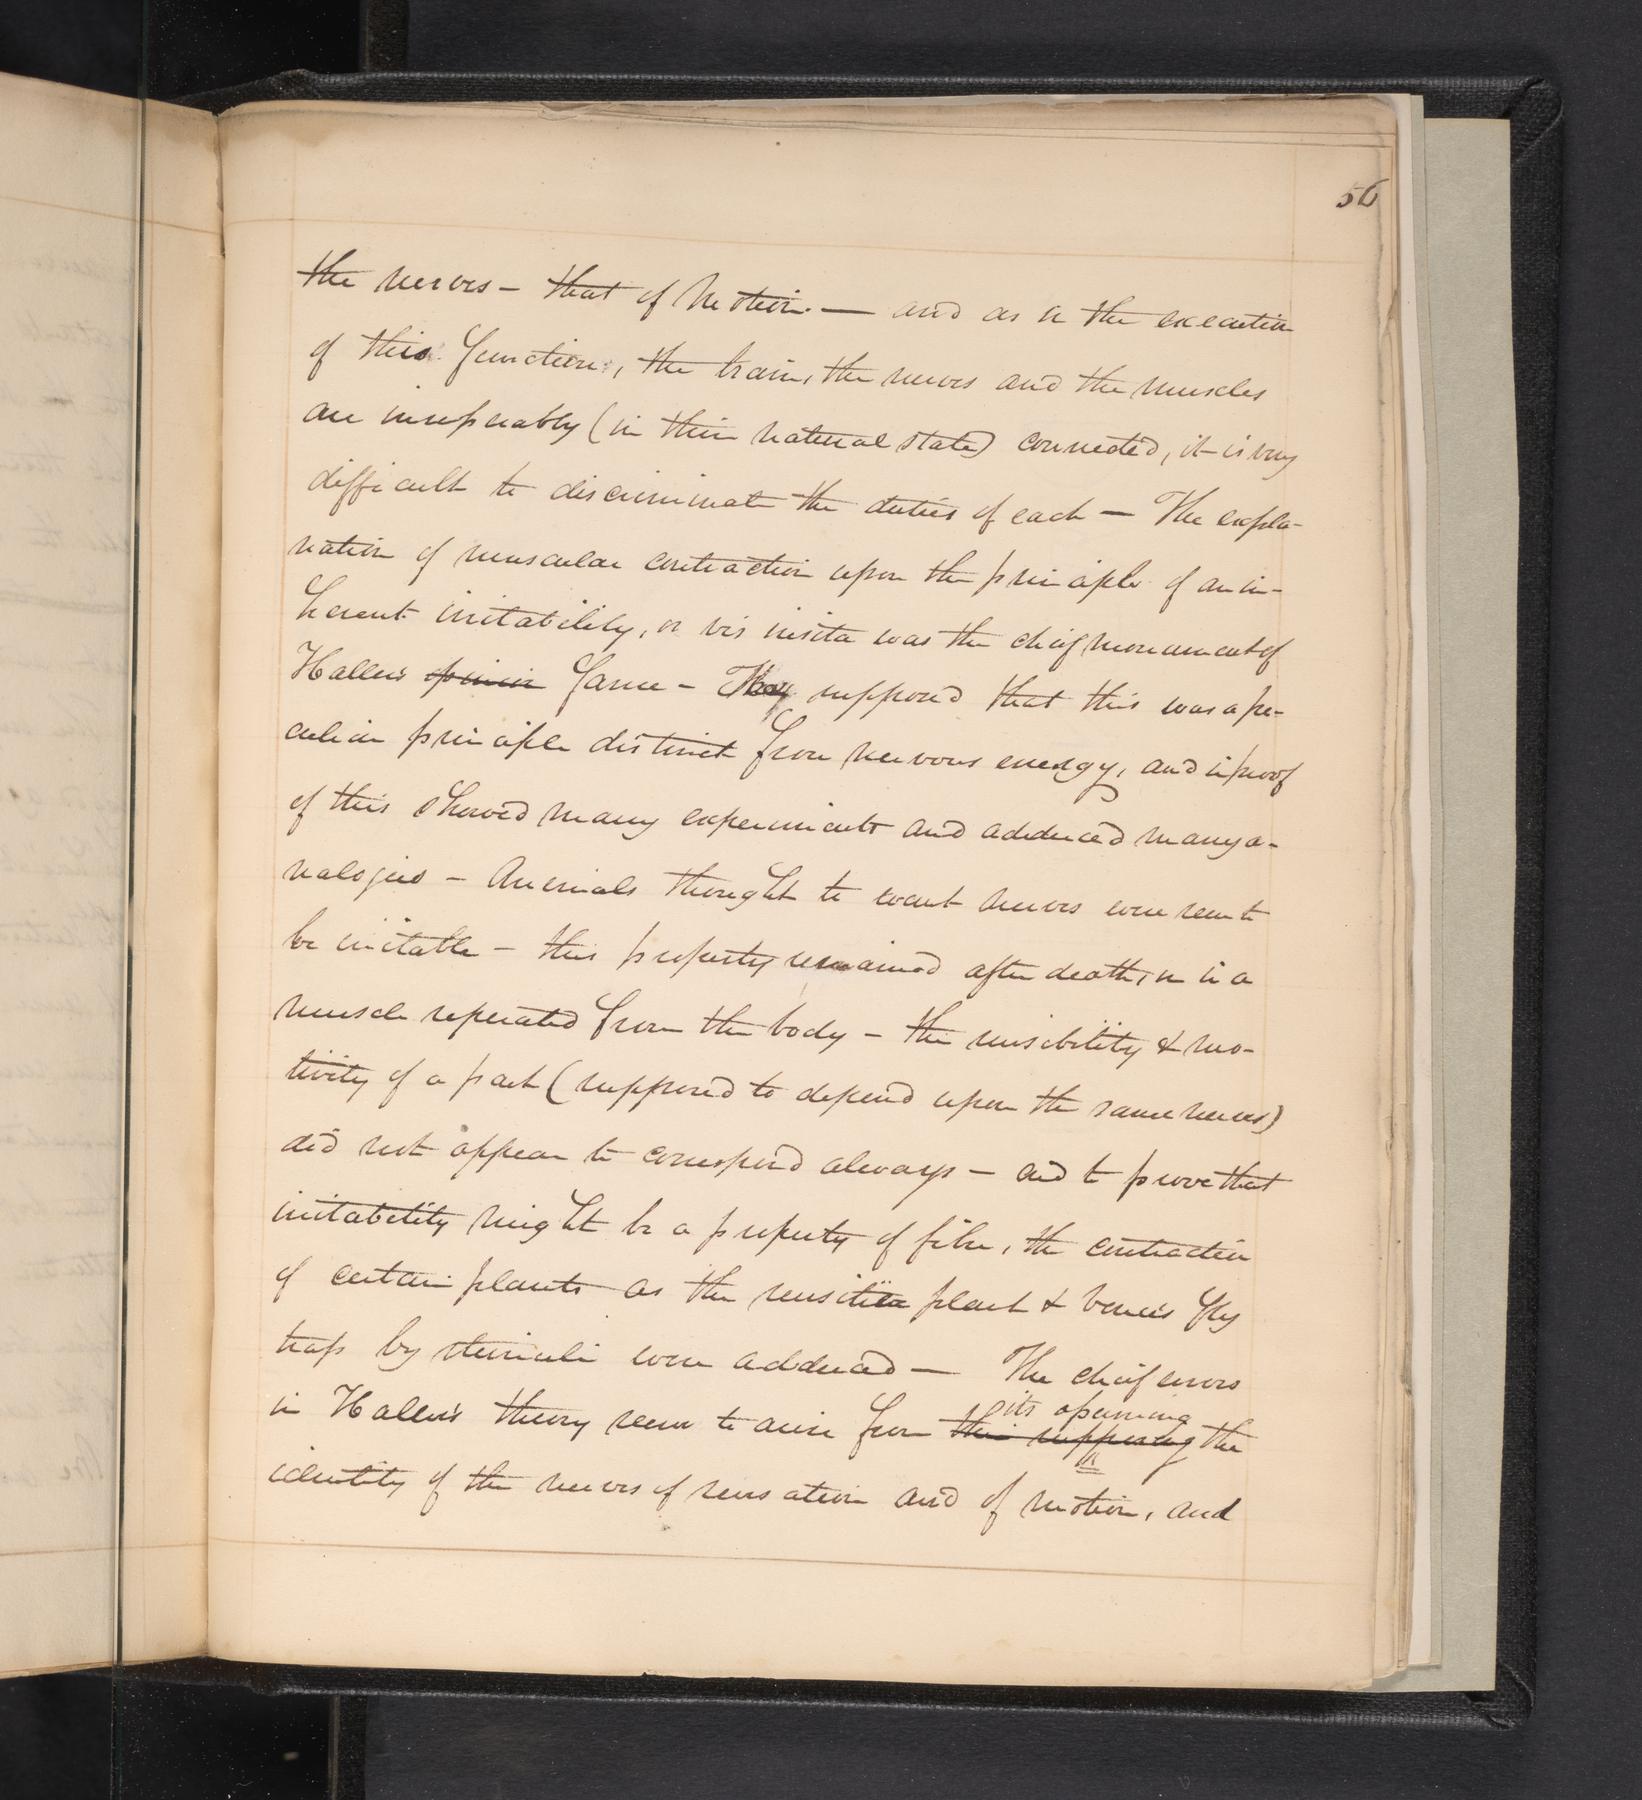 56
the nerves – that of Motion. — and as in the execution
of this function, the brain, the nerves and the muscles
are inseperably (in their natural state) connected, it is very
difficult to discriminate the duties of each — The expla-
nation of muscular contraction upon the principle of an in-
herent irritability, or vis insita was the chief monument of
Hallers opinion fame – They supposed that this was a pe-
culiar principle distinct from nervous energy, and in proof
of this showed many experiments and adduced many a-
nalogies – Animals thought to want nerves were seen to
be irritable – this property remained after death, or in a
muscle seperated from the body – the sensibility & mo-
tivity of a part (supposed to depend upon the same nerves)
did not appear to correspond always – and to prove that
irritability might be a property of fibre, the contraction
of certain plants as the sensitive plant & venus's fly
trap by stimuli were adduced — The chief errors
its assuming
in Haller's theory seem to arise from their supposing the
identity of the nerves of sensation and of motion, and